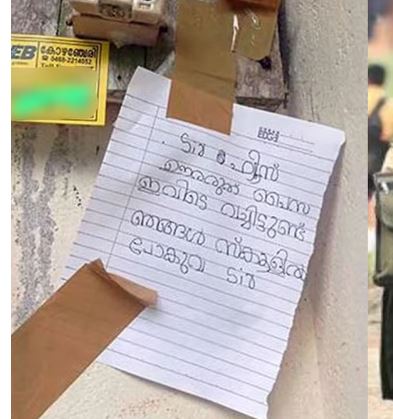 EB കോഴഞ്ചേരി
☎ 0468-2214052
Sir ഫീസ്
ഊരരുത് പൈസ
ഇവിടെ വച്ചിട്ടുണ്ട്
ഞങ്ങൾ സ്കൂളിൽ
പോകുവ Sir